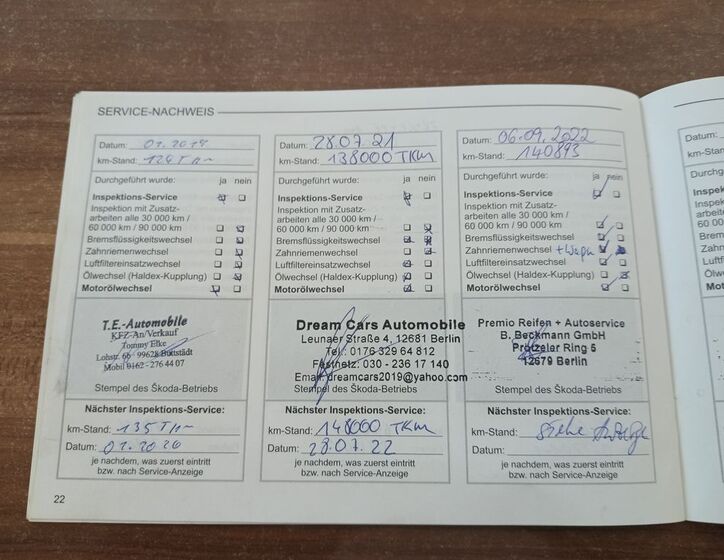 SERVICE-NACHWEIS
Datum: 01.2019
km-Stand: 124 T
Durchgeführt wurde: ja nein
Inspektions-Service
Inspektion mit Zusatz-
arbeiten alle 30 000 km /
60 000 km / 90 000 km
Bremsflüssigkeitswechsel
Zahnriemenwechsel
Luftfiltereinsatzwechsel
Ölwechsel (Haldex-Kupplung)
Motorölwechsel
T.E.-Automobile
KFZ-An/Verkauf
Tommy Elke
Lohstr. 66 / 99628 Buttstädt
Mobil 0162 - 276 44 07
Stempel des Škoda-Betriebs
Nächster Inspektions-Service:
km-Stand: 135 T
Datum: 01.2020
je nachdem, was zuerst eintritt
bzw. nach Service-Anzeige
22
Datum: 28.07.21
km-Stand: 138000 TKM
Durchgeführt wurde: ja nein
Inspektions-Service
Inspektion mit Zusatz-
arbeiten alle 30 000 km /
60 000 km / 90 000 km
Bremsflüssigkeitswechsel
Zahnriemenwechsel
Luftfiltereinsatzwechsel
Ölwechsel (Haldex-Kupplung)
Motorölwechsel
Dream Cars Automobile
Leunaer Straße 4, 12681 Berlin
Tel.: 0176 329 64 812
Festnetz: 030 - 236 17 140
Email: dreamcars2019@yahoo.com
Stempel des Škoda-Betriebs
Nächster Inspektions-Service:
km-Stand: 148000 TKM
Datum: 28.07.22
je nachdem, was zuerst eintritt
bzw. nach Service-Anzeige
Datum: 06.09.2022
km-Stand: 140893
Durchgeführt wurde: ja nein
Inspektions-Service
Inspektion mit Zusatz-
arbeiten alle 30 000 km /
60 000 km / 90 000 km
Bremsflüssigkeitswechsel
Zahnriemenwechsel + Wapu
Luftfiltereinsatzwechsel
Ölwechsel (Haldex-Kupplung)
Motorölwechsel
Premio Reifen + Autoservice
B. Beckmann GmbH
Prötzeler Ring 5
12679 Berlin
Stempel des Škoda-Betriebs
Nächster Inspektions-Service:
km-Stand: siehe Anzeige
Datum:
je nachdem, was zuerst eintritt
bzw. nach Service-Anzeige